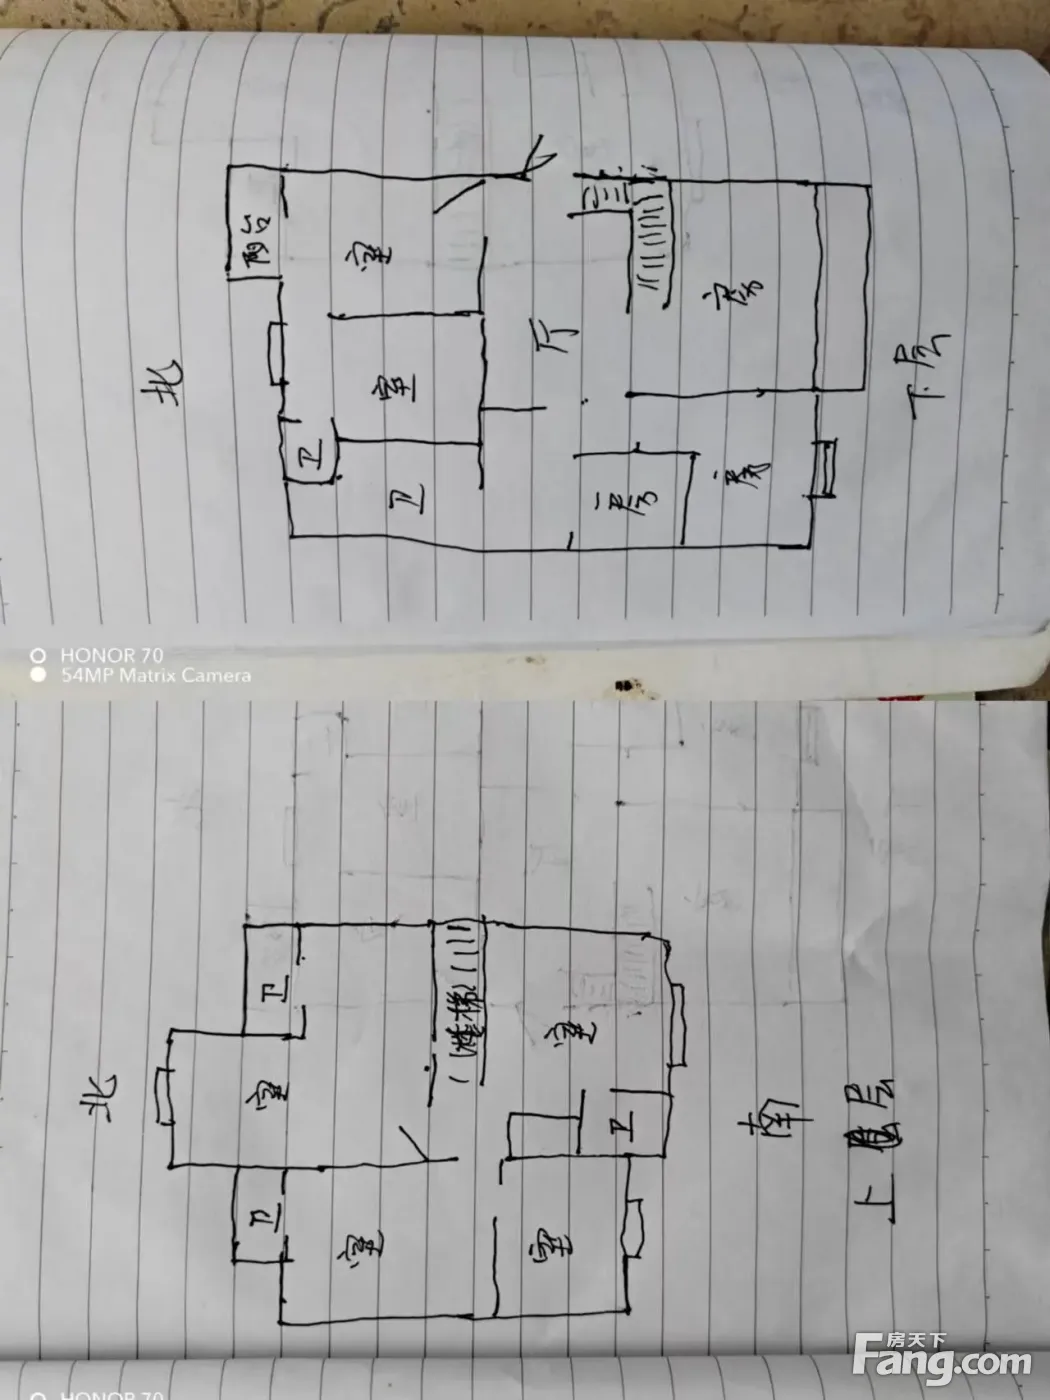 阳台
室
室
卫
卫
厅
房
房
房
北
下层
HONOR 70
54MP Matrix Camera
卫
室
楼梯
室
卫
卫
室
室
北
南
上层
房天下
Fang.com
HONOR 70